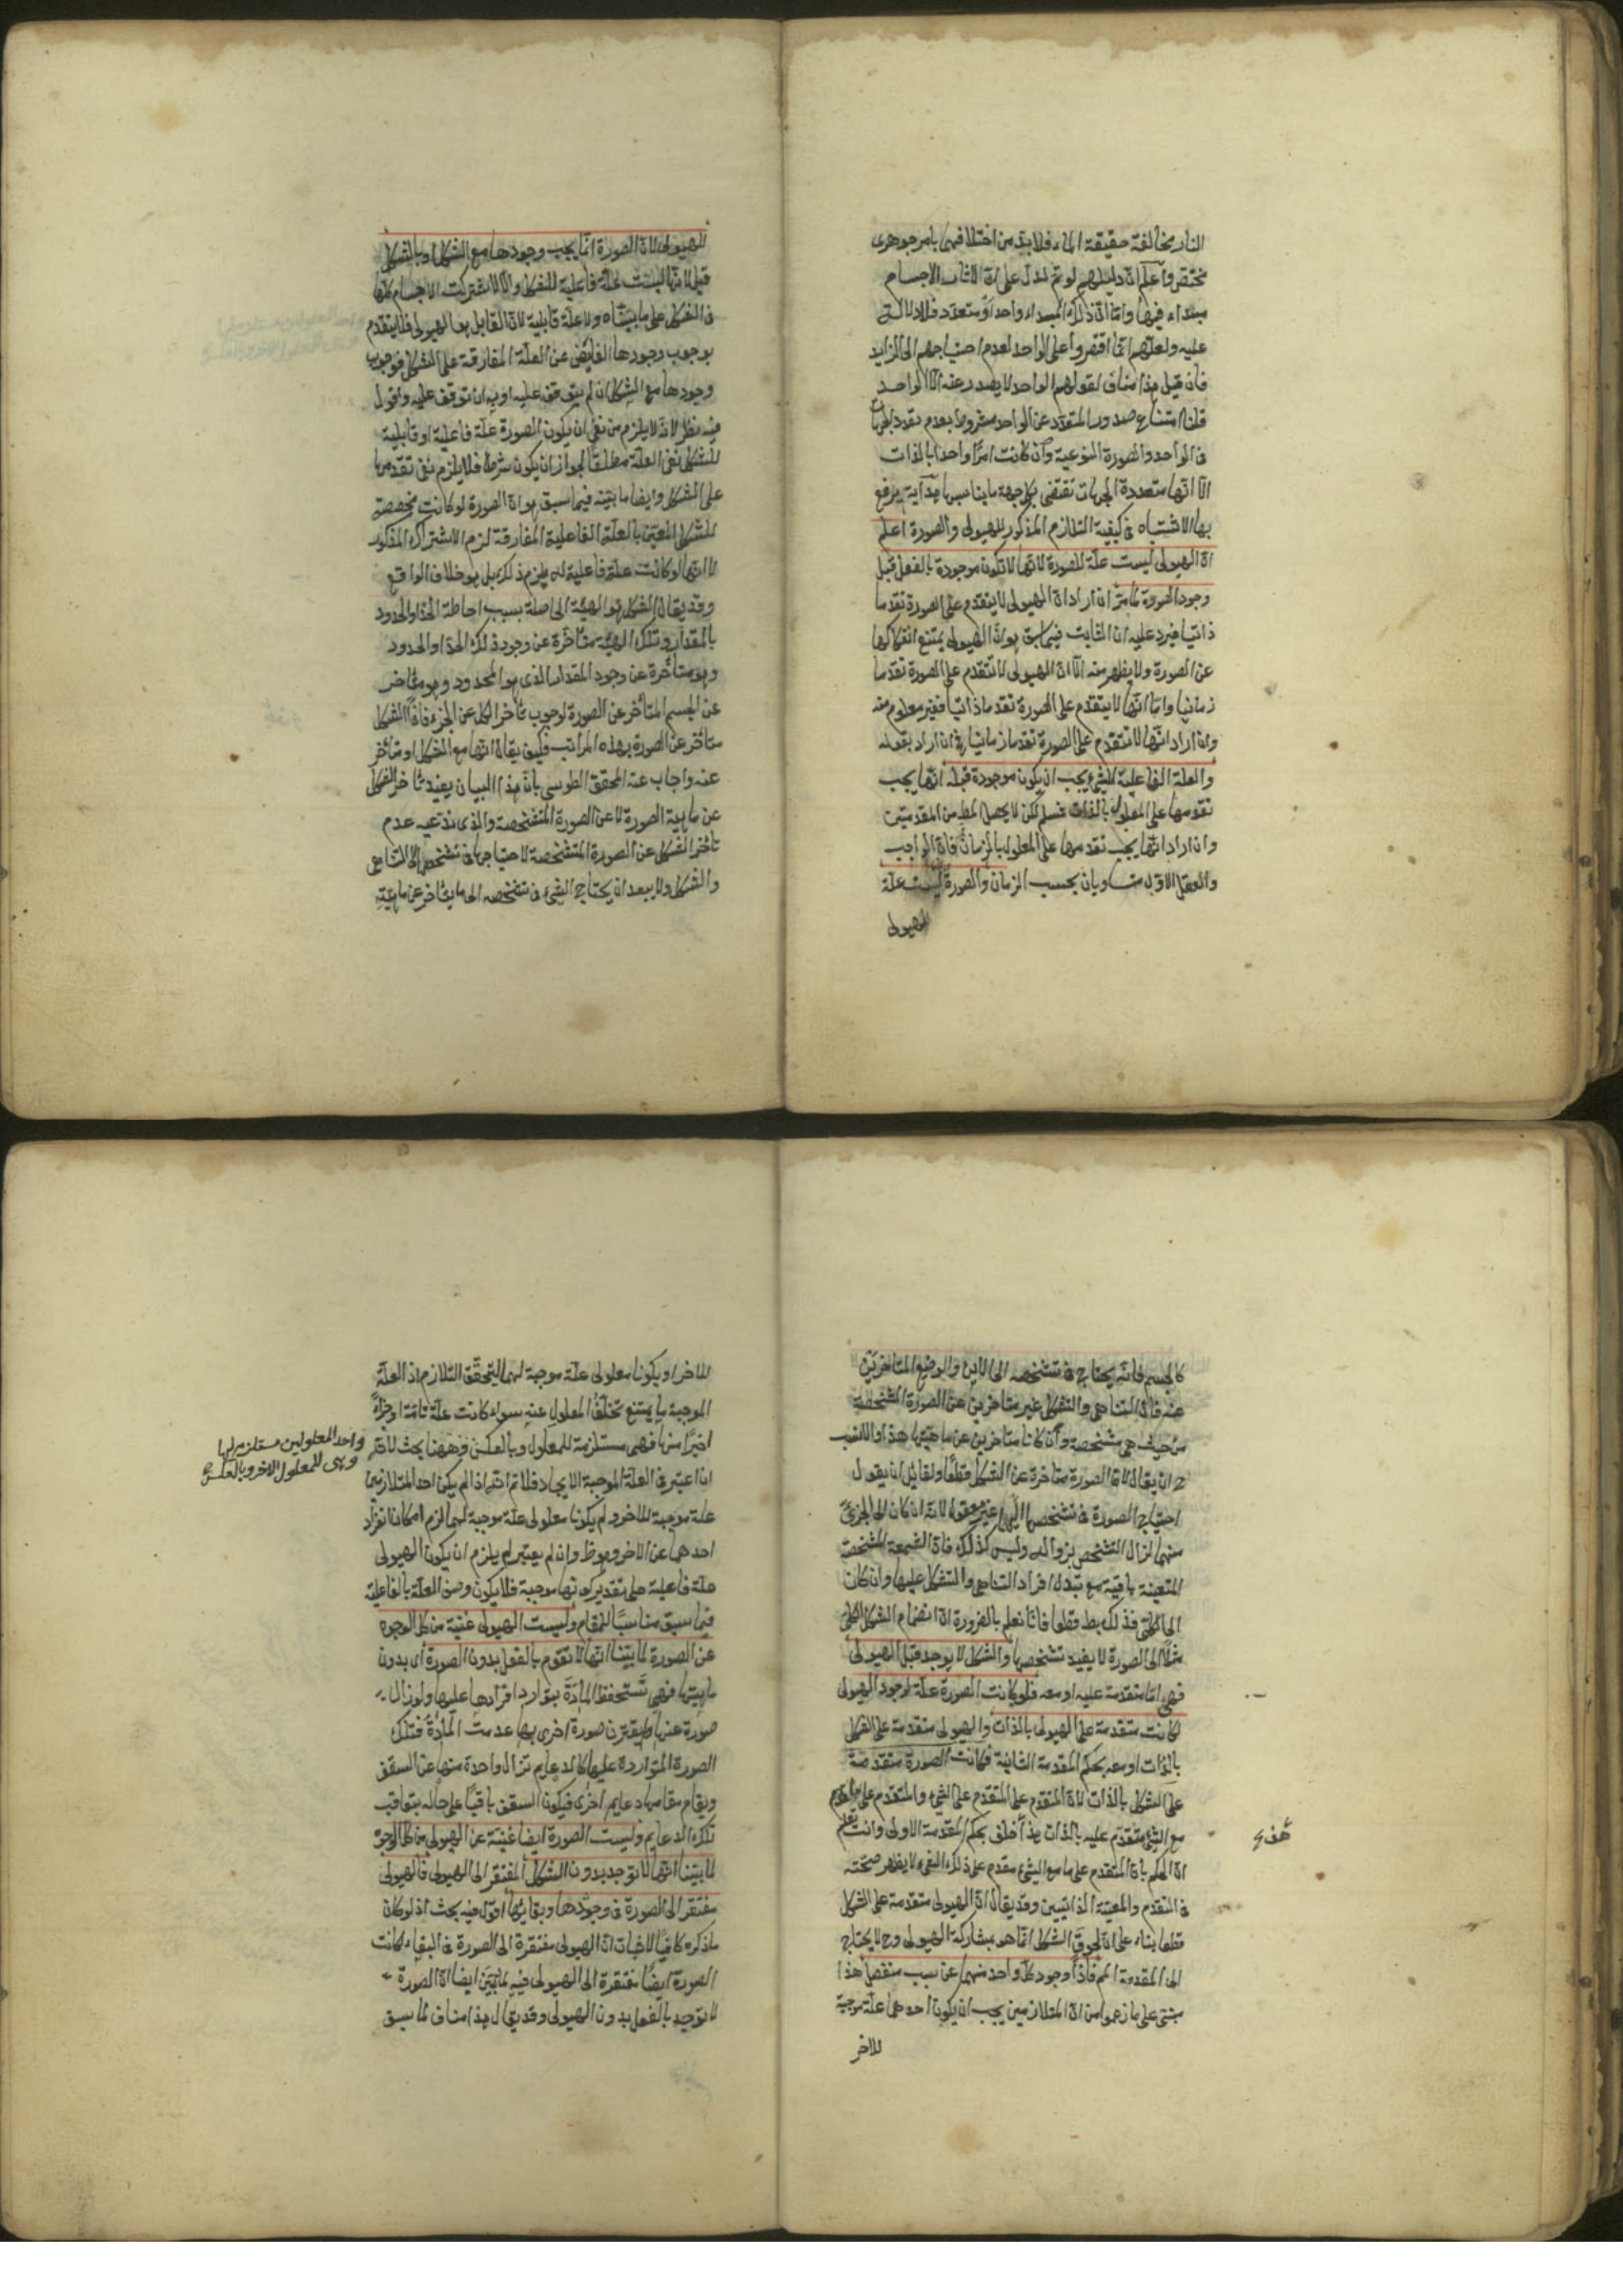 النار مخالفة لحقيقة الماء فلا بد من اختلافهما بامر جوهري
مختص واعلم ان دليلهم لو تم لدل على ان لاثار الاجسام
مبداء فيها واما ان ذلك المبداء واحد او متعدد فلا دلالة
عليه ولعلهم انما اقتصروا على الواحد لعدم احتياجهم الى الزايد
فان قيل هذا مناف لقولهم الواحد لا يصدر عنه الا الواحد
قلنا امتناع صدور المتعدد عن الواحد مشروط بعدم تعدد الجهات
في الواحد والصورة النوعية وان كانت امرا واحدا بالذات
الا انها متعددة الجهات تقتضى بكل جهة ما يناسبها هداية يرفع
بها الاشتباه في كيفية التلازم المذكور للهيولى والصورة اعلم
ان الهيولى ليست علة للصورة لانها لا تكون موجودة بالفعل قبل
وجود الصورة لما مر ان اراد ان الهيولى لا يتقدم على الصورة تقدما
ذاتيا فيرد عليه ان الثابت فيما سبق هو ان الهيولى يمتنع انفكاكها
عن الصورة ولا يظهر منه الا ان الهيولى لا تتقدم على الصورة تقدما
زمانيا واما انها لا يتقدم على الصورة تقدما ذاتيا فغير معلوم منه
وان اراد انها لا تتقدم على الصورة تقدما زمانيا فان اراد بقوله
والعلة الفاعلية للشئ يجب ان يكون موجودة قبله انها يجب
تقدمها على المعلول بالذات فمسلم لكن لا يحصل المط من المقدمتين
وان اراد انها يجب تقدمها على المعلول بالزمان فان الواجب
والعقل الاول متساويان بحسب الزمان والصورة ليست علة
للهيولى
للهيولى لان الصورة انما يجب وجودها مع الشكل او بالشكل
قيل لانها ليست علة فاعلية للشكل والا لاشتركت الاجسام كلها
في الشكل على ما بيناه ولا علة قابلية لان القابل هو الهيولى فلا يتقدم
بوجوب وجودها الفايض عن العلة المفارقة على الشكل فوجوب
وجودها مع الشكل ان لم يتوقف عليه او به ان توقف عليه واقول
فيه نظر لانه لا يلزم من نفى ان يكون الصورة علة فاعلية او قابلية
للشكل نفى العلة مطلقا لجواز ان يكون شرطا فلا يلزم نفى تقدمها
على الشكل وايضا ما بينه فيما سبق هو ان الصورة لو كانت مخصصة
للشكل المعين بالعلة الفاعلية المفارقة لزم الاشتراك المذكور
لا انها لو كانت علة فاعلية له يلزم ذلك بل هو خلاف الواقع
وقد يقال الشكل هو الهيئة الحاصلة بسبب احاطة الحد او الحدود
بالمقدار وتلك الهيئة متاخرة عن وجود ذلك الحد او الحدود
وهو متأخرة عن وجود المقدار الذى هو المحدود وهو متاخر
عن الجسم المتأخر عن الصورة لوجوب تأخر الكل عن الجزء فاذا الشكل
متأخر عن الصورة بهذه المراتب فكيف يقال انها مع الشكل او متأخر
عنه واجاب عنه المحقق الطوسى بان هذا البيان يفيد تاخر الشكل
عن ماهية الصورة لا عن الصورة المتشخصة والذى ندعيه عدم
تاخر الشكل عن الصورة المتشخصة لاحتياجها في تشخصها الى التناهى
والشكل ولا يبعد ان يحتاج الشئ في تشخصه الى ما يتاخر عن ماهيته
كالجسم فانه يحتاج في تشخصه الى الاين والوضع المتاخرين
عنه فاذن التناهى والتشكل غير متاخرين عن الصورة المتشخصة
من حيث هى متشخصة وان كانا متاخرين عن ماهيتها هذا والانسب
ح ان يقال لان الصورة متاخرة عن الشكل قطعا ولقايل ان يقول
احتياج الصورة في تشخصها اليهما غير معقول لانه ان كان الى الجزئى
منهما لزال التشخص بزواله وليس كذلك فان الشمعة المشخصة
المتعينة باقية مع تبدل افراد التناهى والتشكل عليها وان كان
الى الكلى فذلك بط قطعا فانا نعلم بالضرورة ان انضمام الشكل الكلى
مثلا الى الصورة لا يفيد تشخصها والشكل لا يوجد قبل الهيولى
فهى اما متقدمة عليه او معه فلو كانت الصورة علة لوجود الهيولى
لكانت متقدمة على الهيولى بالذات والهيولى متقدمة على الشكل
بالذات او معه بحكم المقدمة الثانية فكانت الصورة متقدمة
على الشكل بالذات لان المتقدم على المتقدم على الشئ والمتقدم على ما هو
مع الشئ متقدم عليه بالذات هذا خلف بحكم المقدمة الاولى وانت تعلم
ان الحكم بان المتقدم على ما مع الشئ مقدم على ذلك الشئ لا يظهر صحته
في التقدم والمعية الذاتيين وقد يقال ان الهيولى متقدمة على الشكل
قطعا بناء على ان لحوق الشكل انما هو بمشاركة الهيولى وح لا يحتاج
الى المقدمة فاذا وجود كل واحد منهما عن سبب منفصل هذا
مبنى على ما زعموا من ان المتلازمين يجب ان يكون احدهما علة موجبة
للاخر
للاخر او يكونا معلولى علة موجبة لهما ليتحقق التلازم اذ العلة
الموجبة ما يمتنع تخلف المعلول عنه سواء كانت علة تامة او جزءا
اخيرا منها فهى مستلزمة للمعلول وبالعكس وههنا بحث لانه
واحد المعلولين مستلزم لها
وهى للمعلول الاخر وبالعكس
ان اعتبر في العلة الموجبة الايجاد فلا تم انه اذا لم يكن احد المتلازمين
علة موجبة للاخر ولم يكونا معلولى علة موجبة لهما لزم امكان انفراد
احدهما عن الاخر وهو ظ وان لم يعتبر لم يلزم ان يكون الهيولى
علة فاعلية على تقدير كونها موجبة فلا يكون وصف العلة بالفاعلية
فيما سبق مناسبا للمقام وليست الهيولى غنية من كل الوجوه
عن الصورة لما بينا انها لا تقوم بالفعل بدون الصورة اى بدون
ماهيتها فهى تستحفظ المادة بتوارد افرادها عليها ولو زال
صورة عنها ولم يقترن صورة اخرى بها عدمت المادة فتلك
الصورة المتواردة عليها كالدعايم تزال واحدة منها عن السقف
ويقام مقامها دعايم اخرى فيكون السقف باقيا على حاله بتعاقب
تلك الدعايم وليست الصورة ايضا غنية عن الهيولى من كل الوجوه
لما بينا انها لا توجد بدون الشكل المفتقر الى الهيولى فالهيولى
مفتقر الى الصورة في وجودها وبقائها اقول فيه بحث اذ لو كان
ما ذكره كافيا لاثبات ان الهيولى مفتقرة الى الصورة في البقاء لكانت
الصورة ايضا مفتقرة الى الهيولى فيه لما تبين ايضا ان الصورة
لا توجد بالفعل بدون الهيولى وقد يقال هذا مناف لما سبق